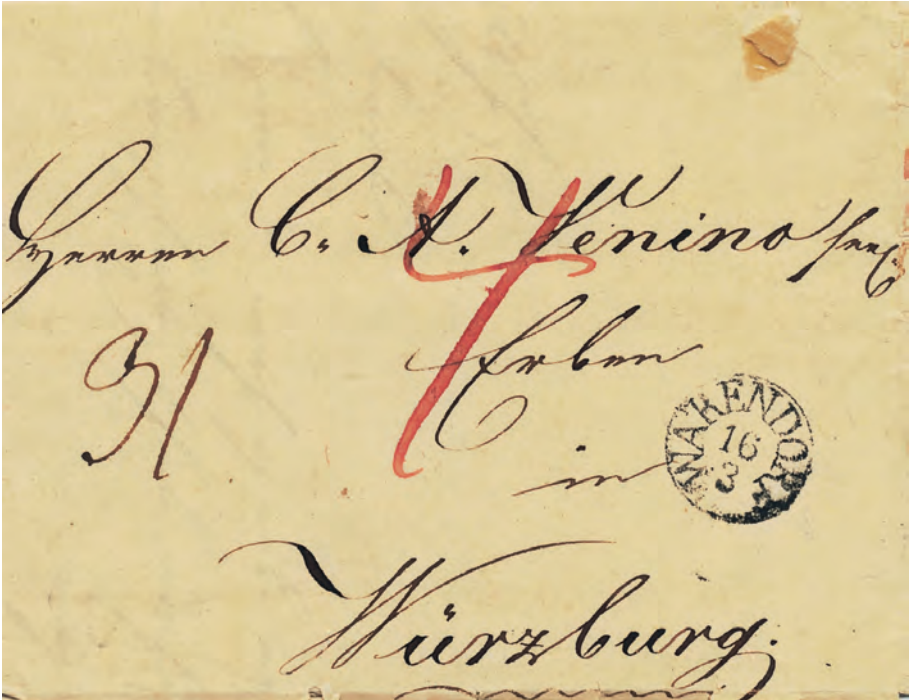 Herren C. A. Venino seel.
Erben
in
Würzburg.
4
WARENDORF
16
3